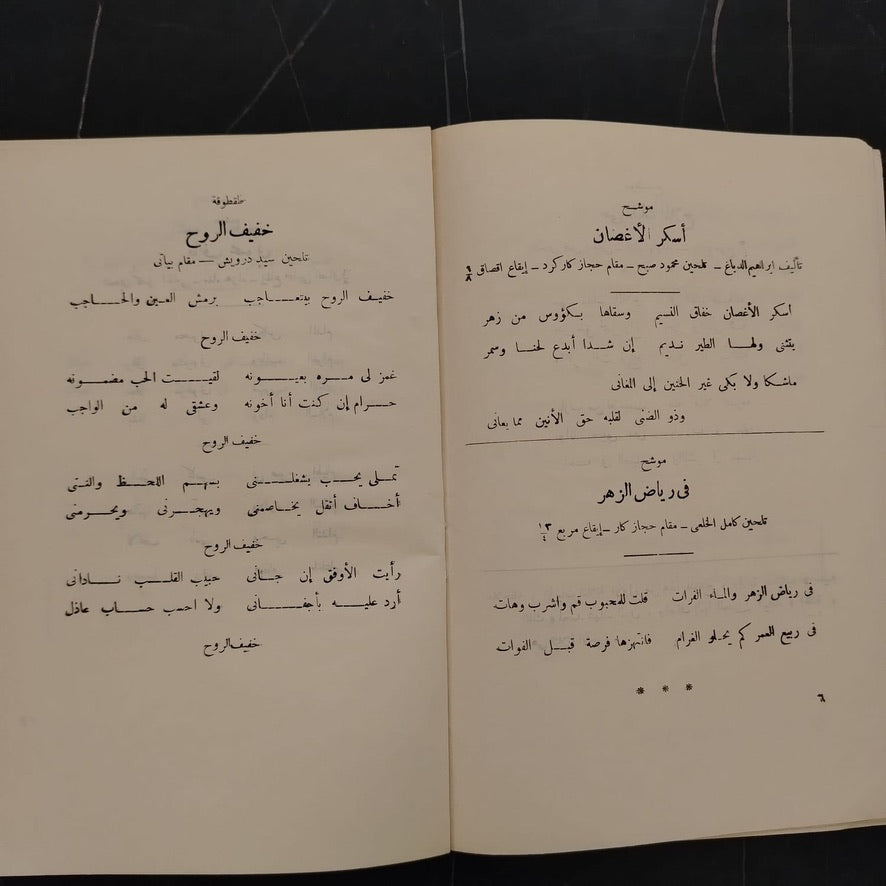 موشح
أسكر الأغصان
تأليف ابراهيم الدباغ ـ تلحين محمود صبح ـ مقام حجاز كار كرد ـ إيقاع اقصاق ٩/٨
أسكر الأغصان خفاق النسيم وسقاها بكؤوس من زهر
يتثنى ولها الطير نديم إن شدا أبدع لحنا وسمر
ماشكا ولا بكى غير الحنين إلى المغانى
وذو الضنى لقلبه حق الأنين مما يعانى
موشح
فى رياض الزهر
تلحين كامل الخلعى ـ مقام حجاز كار ـ إيقاع مربع ١٣/٤
فى رياض الزهر والماء الفرات قلت للمحبوب قم واشرب وهات
فى ربيع العمر كم يحلو الغرام فانتهزها فرصة قبل الفوات
* * *
٦
طقطوقة
خفيف الروح
تلحين سيد درويش ـ مقام بياتى
خفيف الروح بيتعاجب برمش العين والحاجب
خفيف الروح
غمز لى مره بعيونه لقيت الحب مضمونه
حرام إن كنت أنا أخونه وعشقى له من الواجب
خفيف الروح
تملى يحب يشغلنى بسهم اللحظ والتنى
أخاف أتقل يخاصمنى ويهجرنى ويحرمنى
خفيف الروح
رأيت الأوفق إن جانى حبيب القلب نادانى
أرد عليه بأجفانى ولا احسب حساب عاذل
خفيف الروح